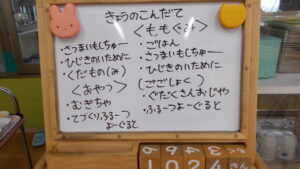 きょうのこんだて
＜ももぐみ＞
・さつまいもしちゅー
・ひじきのいために
・くだもの(み)
＜おやつ＞
・むぎちゃ
・てづくりふるーつ
よーぐると
・ごはん
・さつまいもしちゅー
・ひじきのいために
(ごごしょく)
・ぐだくさんおじや
・ふるーつよーぐると
1024